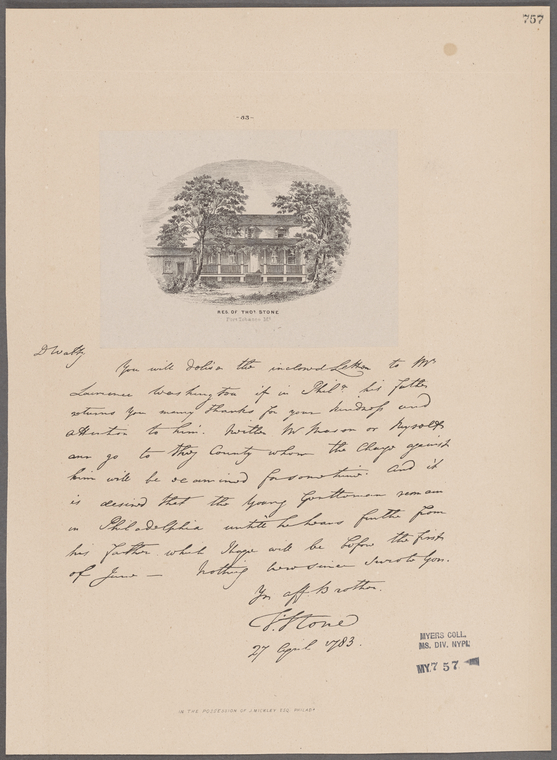 757
-83-
RES. OF THOS. STONE
Port Tobacco Md.
D Watty
You will deliver the inclosed Letter to Mr
Lawrence Washington if in Phila his father
returns you many thanks for your kindness and
attention to him. Neither Mr Mason or Myself
can go to County where the Charge against
him will be examined for some time. And it
is desired that the Young Gentleman remain
in Philadelphia untill he hears further from
his father which I hope will be before the first
of June — Nothing new since I wrote you.
Yr aff Brother.
T. Stone
27 April 1783.
MYERS COLL.
MS. DIV. NYPL
MY. 757
IN THE POSSESSION OF ESQ. PHILADA